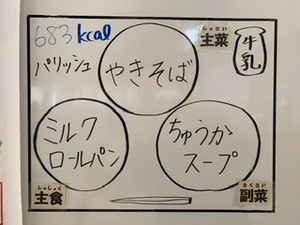 683kcal
しゅさい
主菜
牛乳
パリッシュ
やきそば
ミルク
ロールパン
ちゅうか
スープ
しゅしょく
主食
ふくさい
副菜